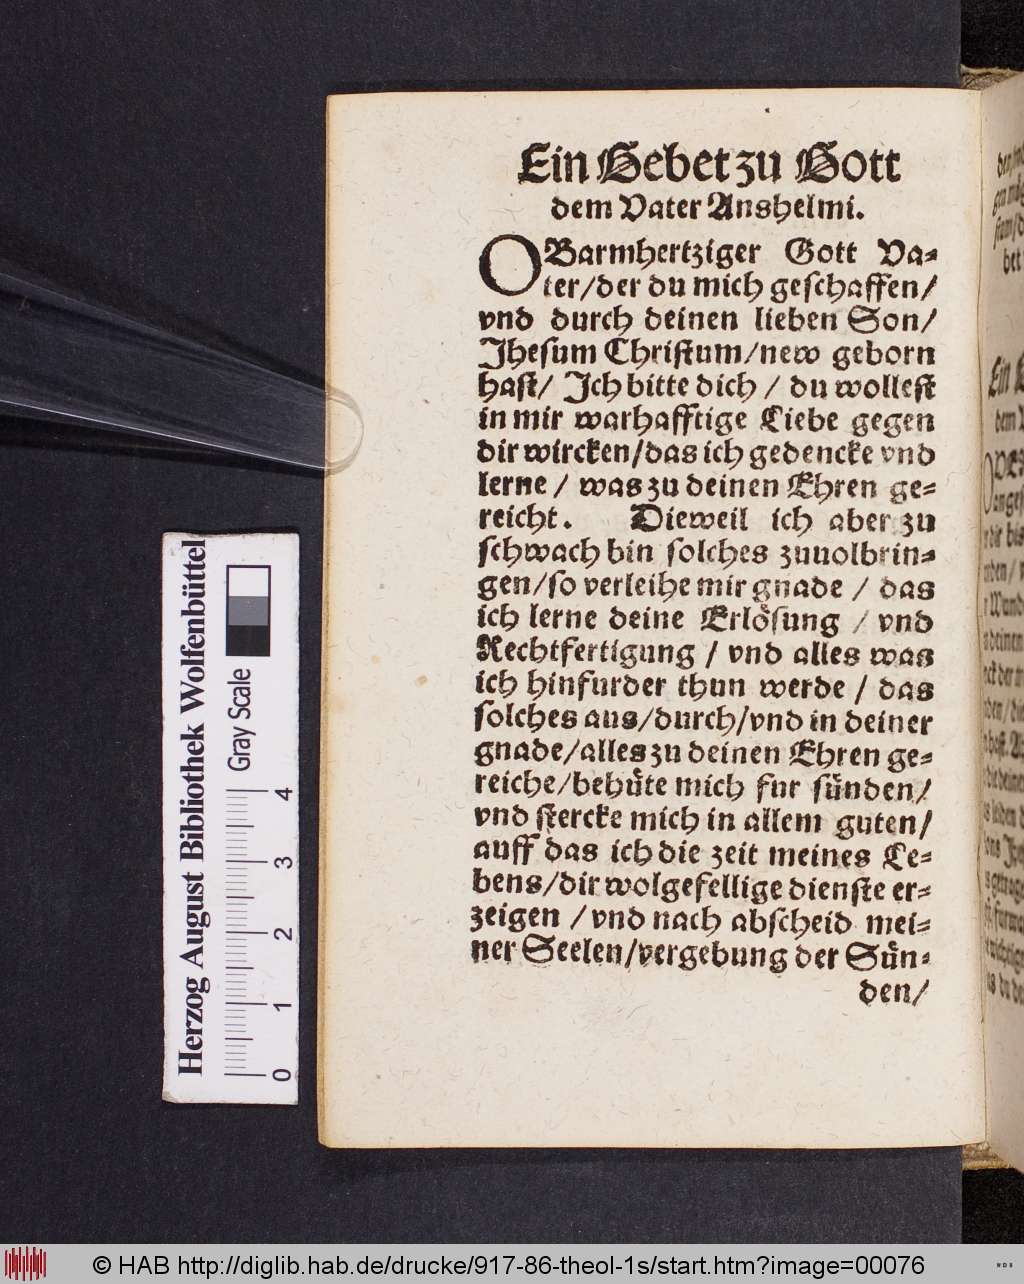 Ein Gebet zu Gott
dem Vater Anshelmi.
O Barmhertziger Gott Va-
ter/der du mich geschaffen/
vnd durch deinen lieben Son/
Jhesum Christum/new geborn
hast/ Ich bitte dich / du wollest
in mir warhafftige Liebe gegen
dir wircken/das ich gedencke vnd
lerne / was zu deinen Ehren ge-
reicht. Dieweil ich aber zu
schwach bin solches zuuolbrin-
gen/so verleihe mir gnade / das
ich lerne deine Erlösung / vnd
Rechtfertigung / vnd alles was
ich hinfurder thun werde / das
solches aus/durch/vnd in deiner
gnade/alles zu deinen Ehren ge-
reiche/behüte mich fur sünden/
vnd stercke mich in allem guten/
auff das ich die zeit meines Le-
bens/dir wolgefellige dienste er-
zeigen / vnd nach abscheid mei-
ner Seelen/vergebung der Sün-
den/
Herzog August Bibliothek Wolfenbüttel
Gray Scale
0 1 2 3 4
© HAB http://diglib.hab.de/drucke/917-86-theol-1s/start.htm?image=00076